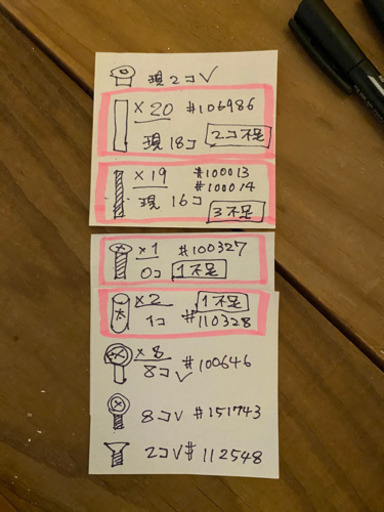 現2コ✓
×20 #106986
現18コ 2コ不足
×19 #100013
#100014
現16コ 3不足
×1 #100327
0コ 1不足
×2 1不足
1コ #110328
×8 #100646
8コ✓
8コ✓ #151743
2コ✓ #112548